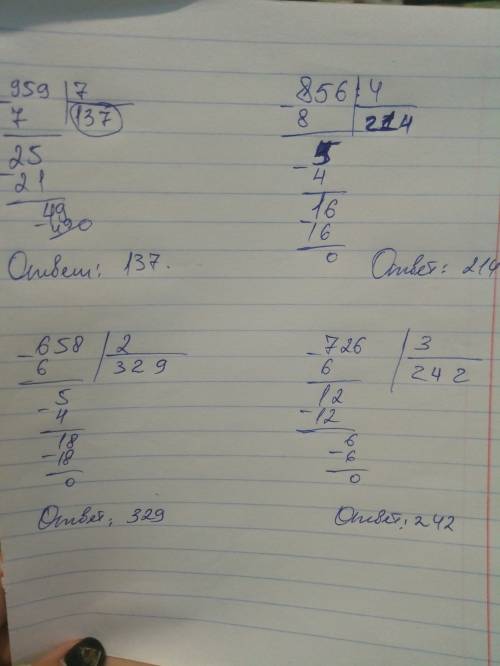 959 7
7 137
25
- 21
49
- 49 0
Ответ: 137.
- 856 4
8 214
- 5
4
16
- 16
0
Ответ: 214
- 658 2
6 329
- 5
4
18
- 18
0
Ответ: 329
- 726 3
6 242
12
- 12
6
- 6
0
Ответ: 242